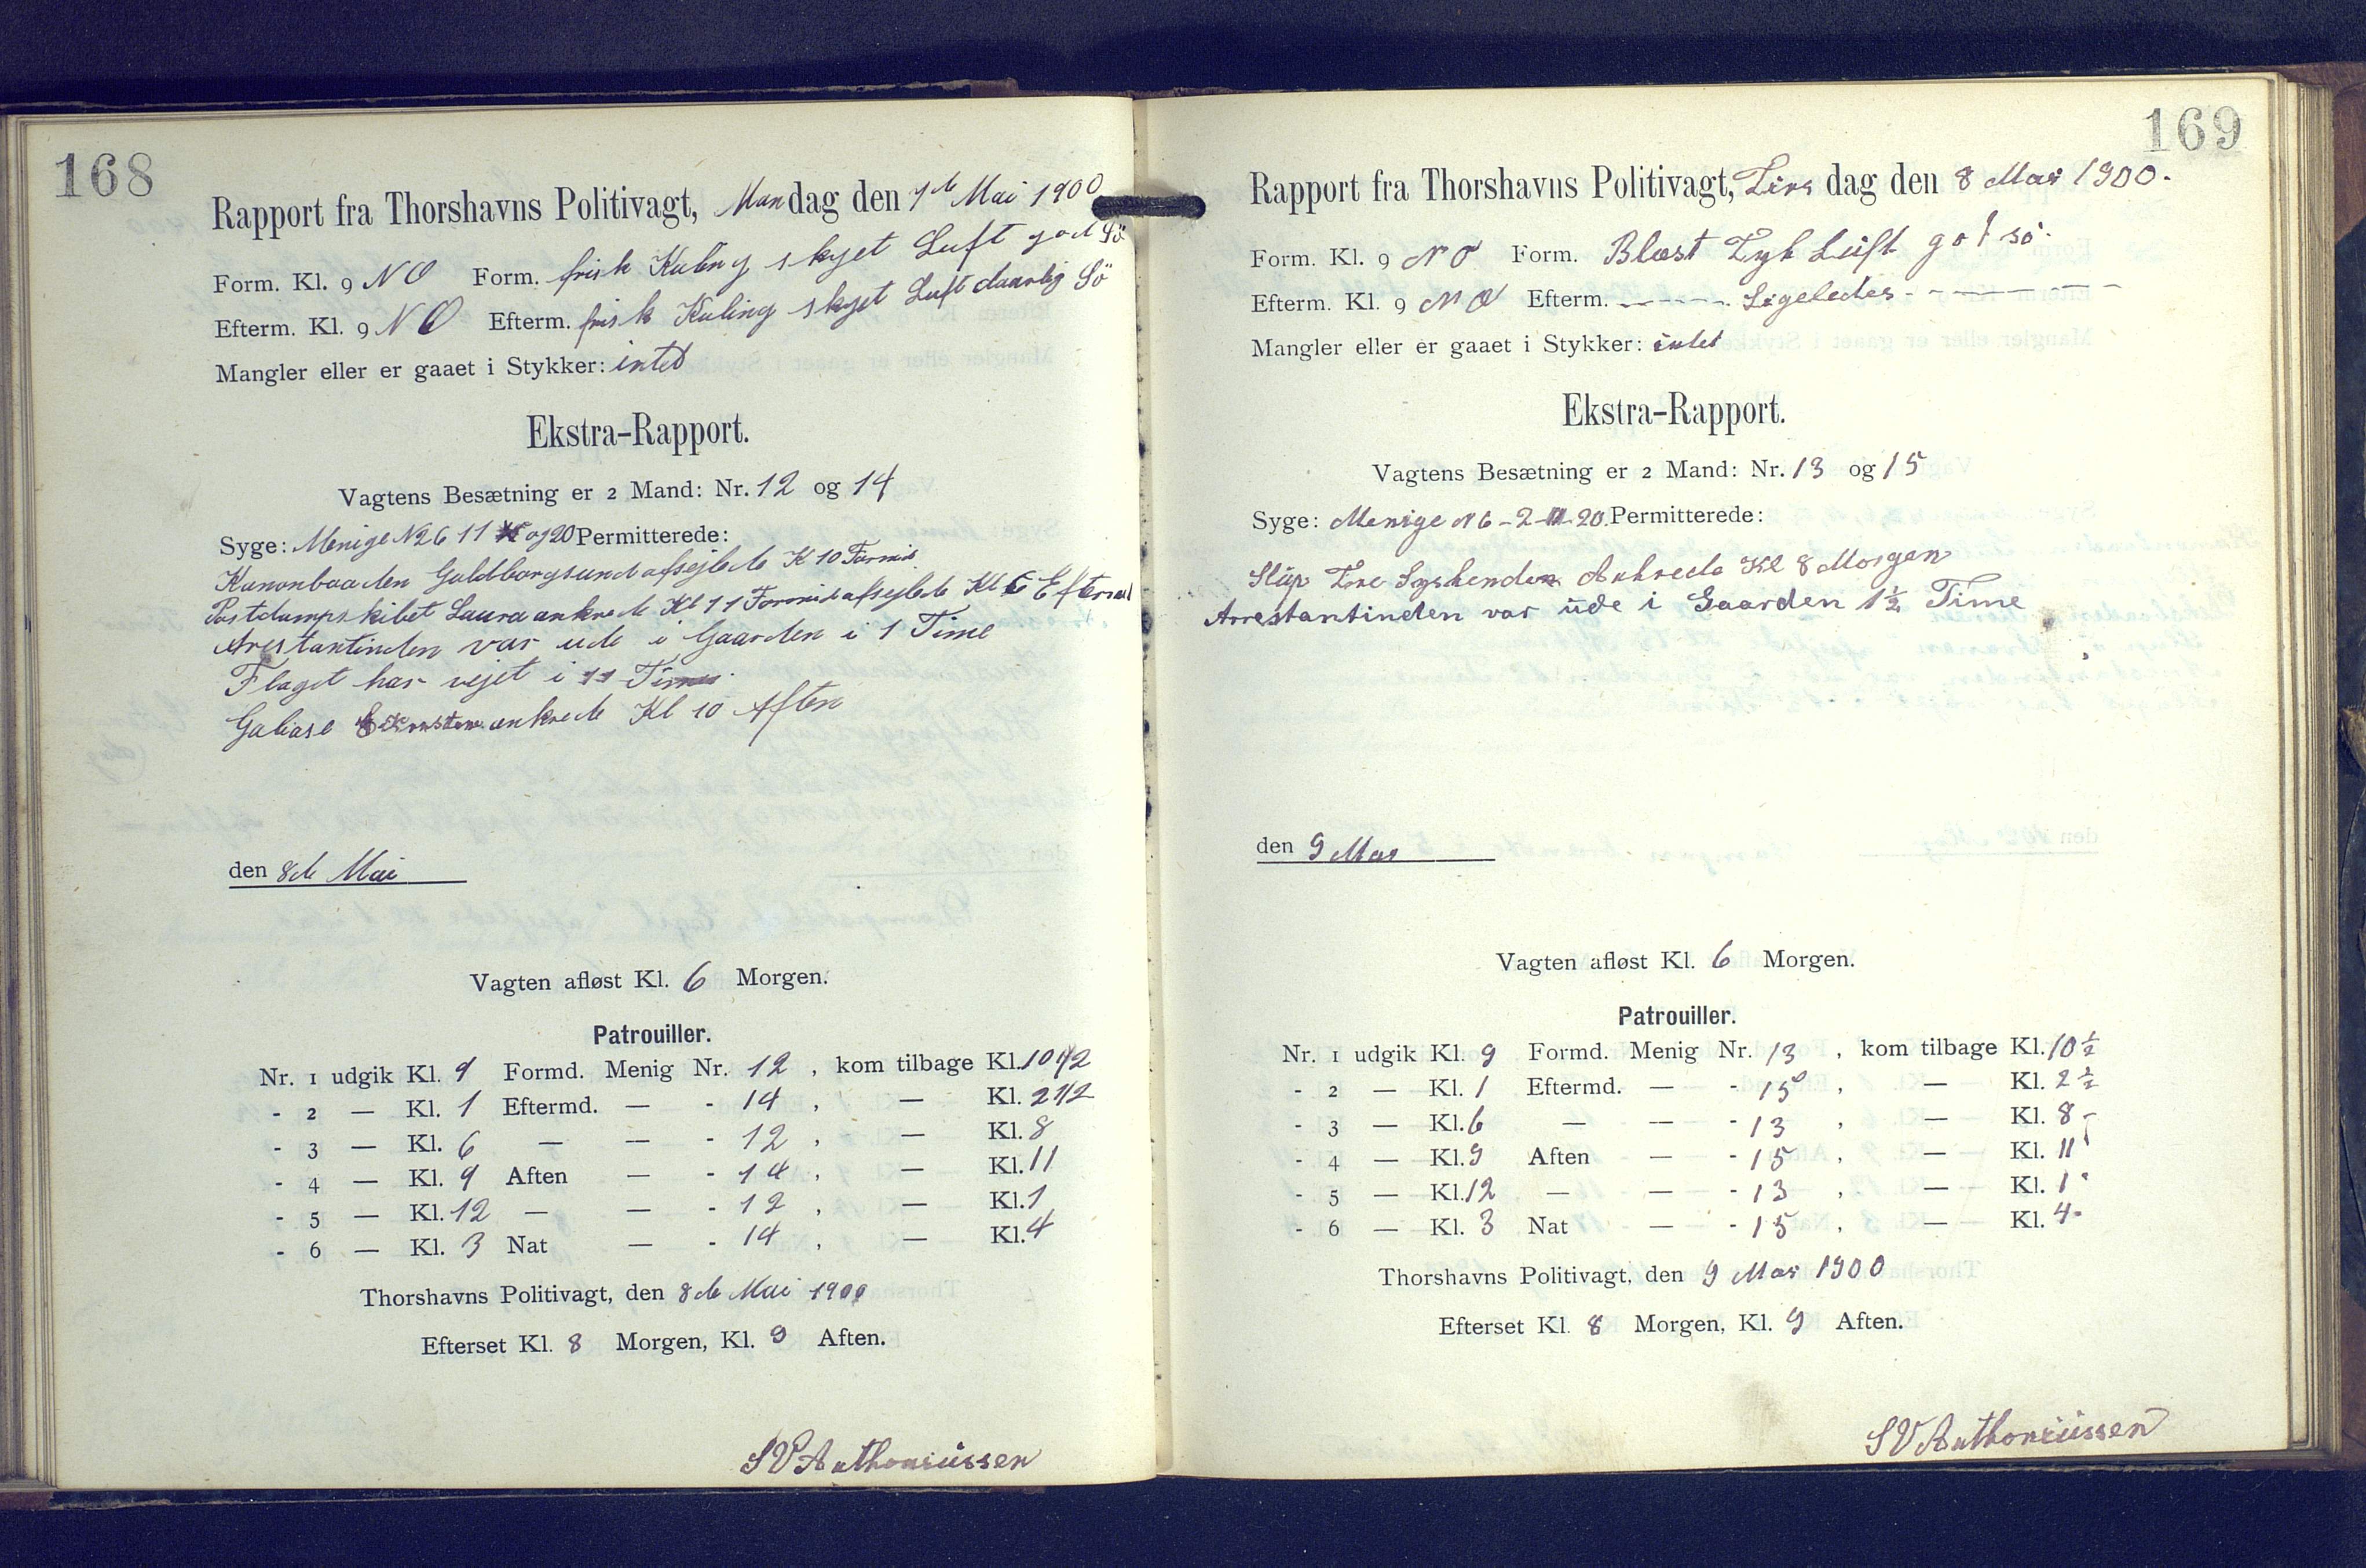 168
Rapport fra Thorshavns Politivagt, Mandag den 7de Mai 1900
Form. Kl. 9 NO Form. frisk Kuling skyet Luft god Sö
Efterm. Kl. 9 NO Efterm. frisk Kuling skyet Luft daarlig Sö
Mangler eller er gaaet i Stykker: intet
Ekstra-Rapport.
Vagtens Besætning er 2 Mand: Nr. 12 og 14
Syge: Menige N 2 6 11 og 20 Permitterede:
Kanonbaaden Guldborgsund afsejlede K 10 Formid
Postdampskibet Laura ankrede Kl 11 Formid afsejlede Kl 6 Eftermd
Arestantinden var ude i Gaarden i 1 Time
Flaget har vejet i 11 Timer
Galiase ankrede Kl 10 Aften
den 8de Mai
Vagten afløst Kl. 6 Morgen.
Patrouiller.
Nr. 1 udgik Kl. 9 Formd. Menig Nr. 12 , kom tilbage Kl. 10 1/2
- 2 — Kl. 1 Eftermd. — - 14 , — Kl. 2 1/2
- 3 — Kl. 6 — — - 12 , — Kl. 8
- 4 — Kl. 9 Aften — - 14 , — Kl. 11
- 5 — Kl. 12 — — - 12 , — Kl. 1
- 6 — Kl. 3 Nat — - 14 , — Kl. 4
Thorshavns Politivagt, den 8de Mai 1900
Efterset Kl. 8 Morgen, Kl. 9 Aften.
SVAnthoniüssen
169
Rapport fra Thorshavns Politivagt, Tirsdag den 8 Mai 1900.
Form. Kl. 9 NO Form. Blæst Tyk Lüft got sö.
Efterm. Kl. 9 NO Efterm. - - - - - Ligeledes - - - - - -
Mangler eller er gaaet i Stykker: intet
Ekstra-Rapport.
Vagtens Besætning er 2 Mand: Nr. 13 og 15
Syge: Menige N 6 - 2 - 11 - 20. Permitterede:
Slüp Tre Syskende Ankrede Kl 8 Morgen
Arrestantinden var üde i Gaarden 1 1/2 Time
den 9 Mai
Vagten afløst Kl. 6 Morgen.
Patrouiller.
Nr. 1 udgik Kl. 9 Formd. Menig Nr. 13 , kom tilbage Kl. 10 1/2
- 2 — Kl. 1 Eftermd. — - 15 , — Kl. 2 1/2
- 3 — Kl. 6 — — - 13 , — Kl. 8 -
- 4 — Kl. 9 Aften — - 15 , — Kl. 11
- 5 — Kl. 12 — — - 13 , — Kl. 1 -
- 6 — Kl. 3 Nat — - 15 , — Kl. 4 -
Thorshavns Politivagt, den 9 Mai 1900
Efterset Kl. 8 Morgen, Kl. 9 Aften.
SVAnthoniüssen